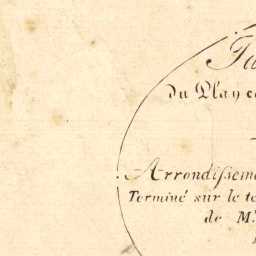 Ta
du Plan c
Arrondissem
Terminé sur le te
de M.